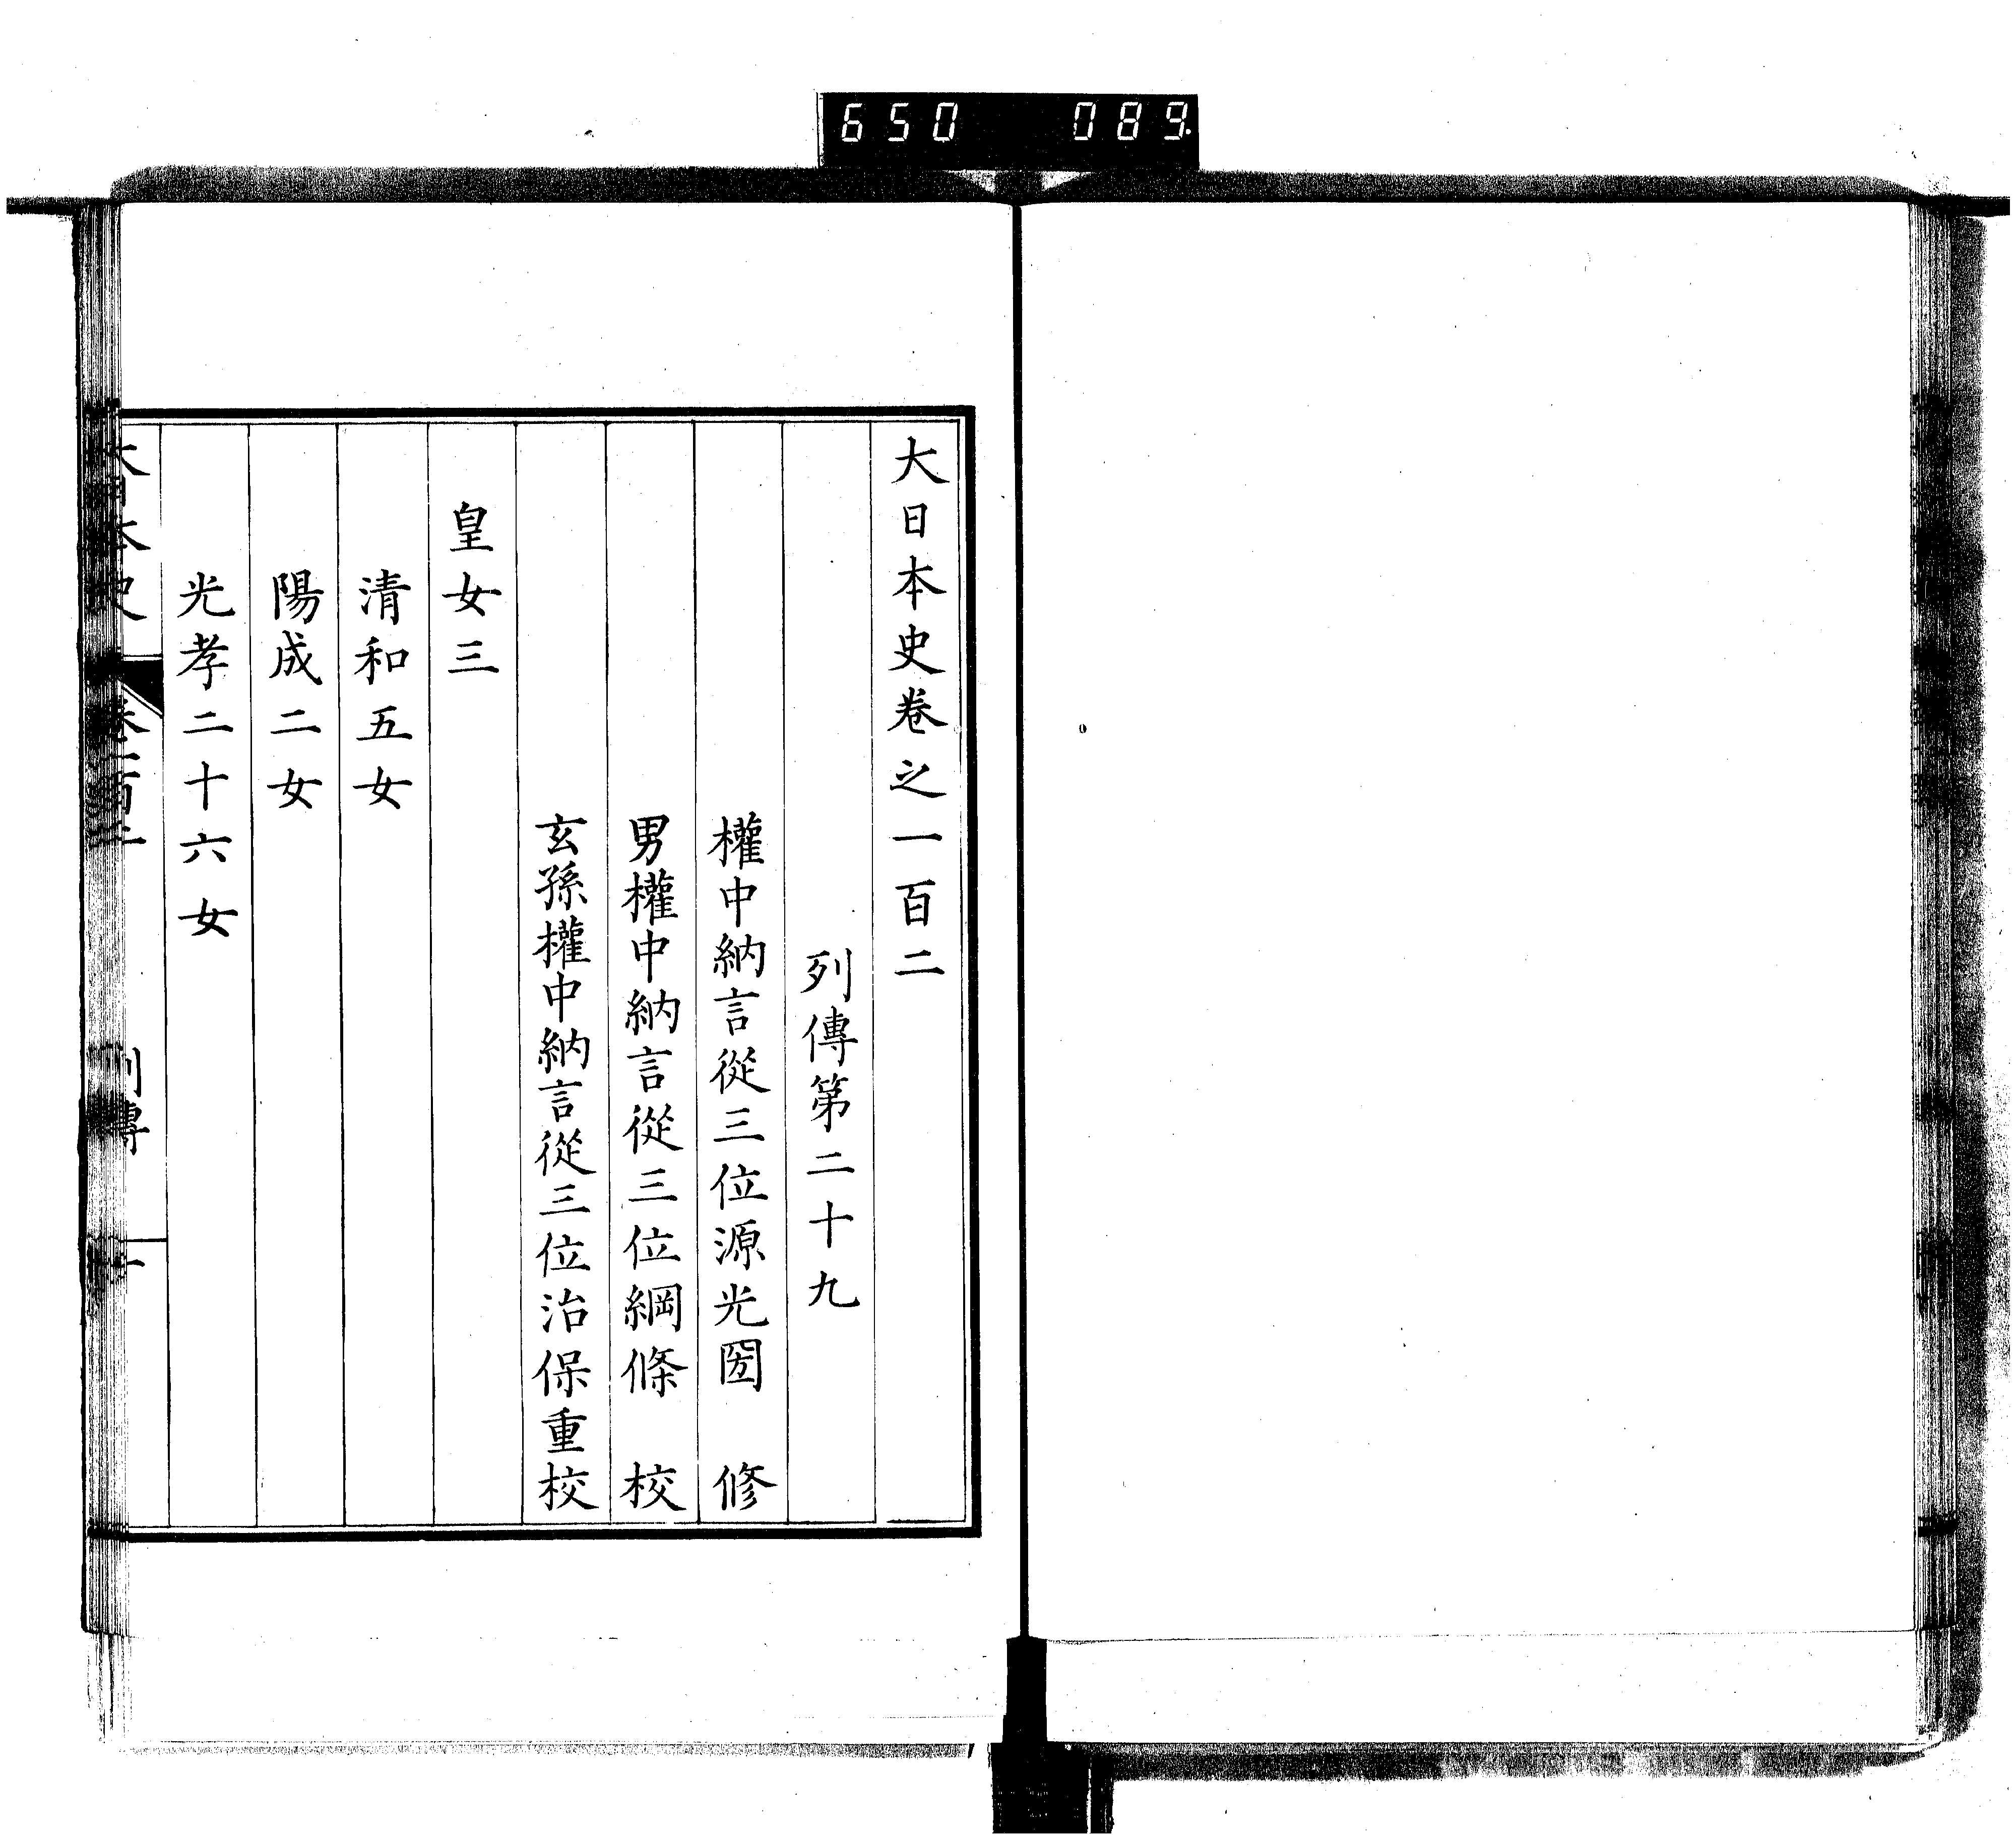 650 089
大日本史卷之一百二
列傳第二十九
權中納言從三位源光圀 修
男權中納言從三位綱條 校
玄孫權中納言從三位治保重校
皇女三
清和五女
陽成二女
光孝二十六女
大日本史 卷一百二 列傳 一